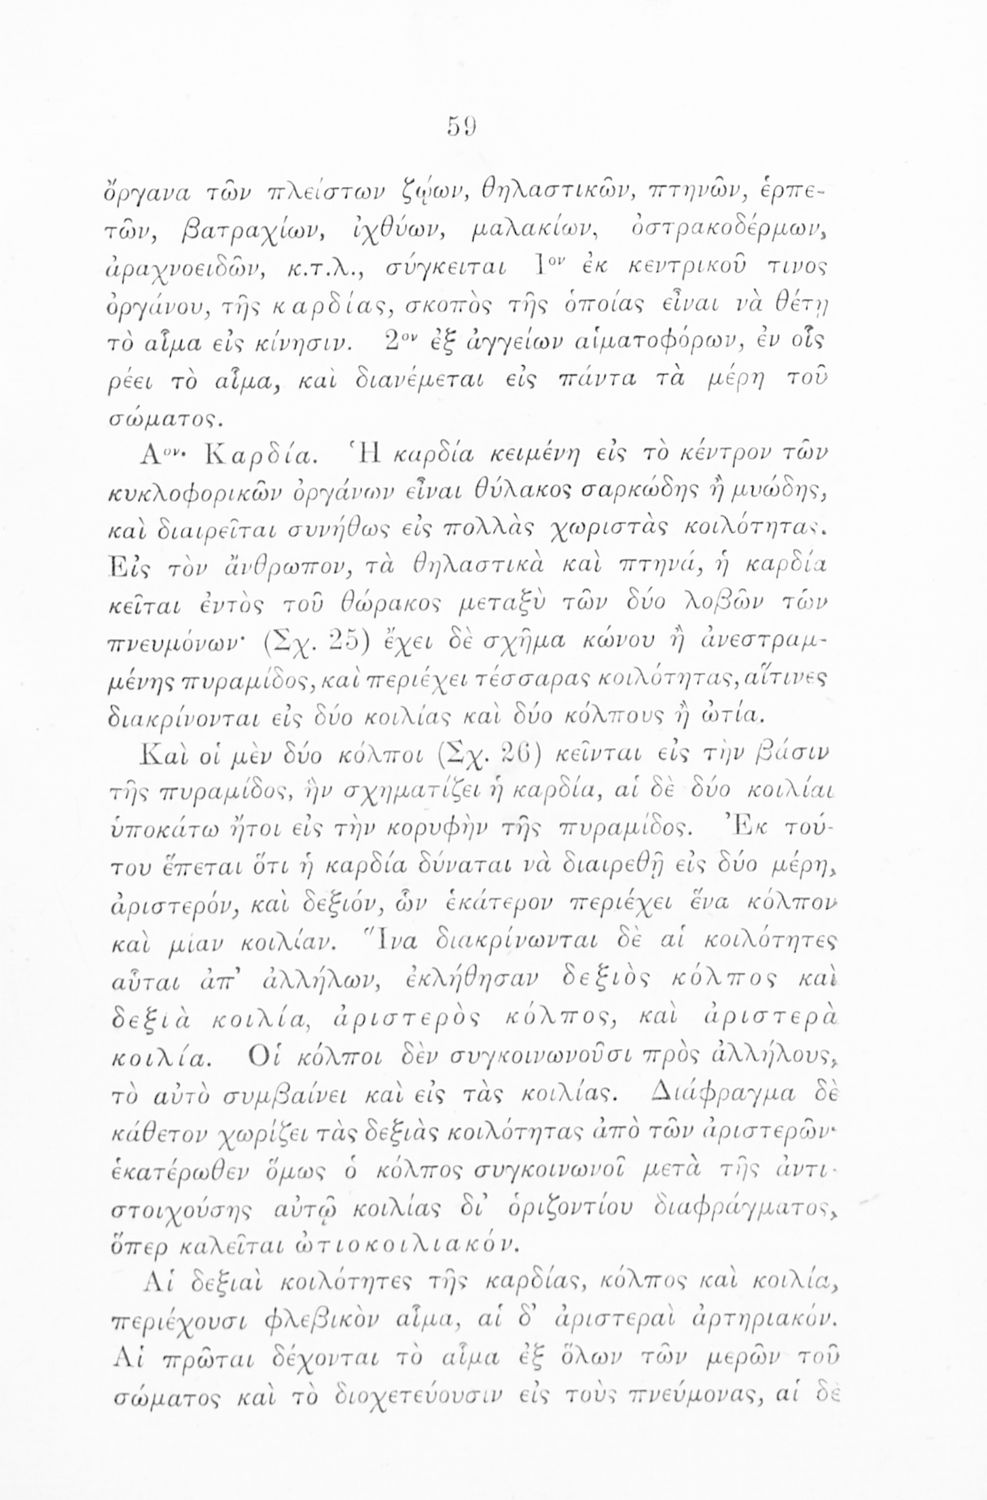 59
ὄργανα τῶν πλείστων ζῴων, θηλαστικῶν, πτηνῶν, ἑρπε-
τῶν, βατραχίων, ἰχθύων, μαλακίων, ὀστρακοδέρμων,
ἀραχνοειδῶν, κ.τ.λ., σύγκειται 1ον ἐκ κεντρικοῦ τινος
ὀργάνου, τῆς καρδίας, σκοπὸς τῆς ὁποίας εἶναι νὰ θέτῃ
τὸ αἷμα εἰς κίνησιν. 2ον ἐξ ἀγγείων αἱματοφόρων, ἐν οἷς
ῥέει τὸ αἷμα, καὶ διανέμεται εἰς πάντα τὰ μέρη τοῦ
σώματος.
Αον. Καρδία. Ἡ καρδία κειμένη εἰς τὸ κέντρον τῶν
κυκλοφορικῶν ὀργάνων εἶναι θύλακος σαρκώδης ἢ μυώδης,
καὶ διαιρεῖται συνήθως εἰς πολλὰς χωριστὰς κοιλότητας.
Εἰς τὸν ἄνθρωπον, τὰ θηλαστικὰ καὶ πτηνά, ἡ καρδία
κεῖται ἐντὸς τοῦ θώρακος μεταξὺ τῶν δύο λοβῶν τῶν
πνευμόνων· (Σχ. 25) ἔχει δὲ σχῆμα κώνου ἢ ἀνεστραμ-
μένης πυραμίδος, καὶ περιέχει τέσσαρας κοιλότητας, αἵτινες
διακρίνονται εἰς δύο κοιλίας καὶ δύο κόλπους ἢ ὠτία.
Καὶ οἱ μὲν δύο κόλποι (Σχ. 26) κεῖνται εἰς τὴν βάσιν
τῆς πυραμίδος, ἣν σχηματίζει ἡ καρδία, αἱ δὲ δύο κοιλίαι
ὑποκάτω ἤτοι εἰς τὴν κορυφὴν τῆς πυραμίδος. Ἐκ τού-
του ἕπεται ὅτι ἡ καρδία δύναται νὰ διαιρεθῇ εἰς δύο μέρη,
ἀριστερόν, καὶ δεξιόν, ὧν ἑκάτερον περιέχει ἕνα κόλπον
καὶ μίαν κοιλίαν. Ἵνα διακρίνωνται δὲ αἱ κοιλότητες
αὗται ἀπ’ ἀλλήλων, ἐκλήθησαν δεξιὸς κόλπος καὶ
δεξιὰ κοιλία, ἀριστερὸς κόλπος, καὶ ἀριστερὰ
κοιλία. Οἱ κόλποι δὲν συγκοινωνοῦσι πρὸς ἀλλήλους,
τὸ αὐτὸ συμβαίνει καὶ εἰς τὰς κοιλίας. Διάφραγμα δὲ
κάθετον χωρίζει τὰς δεξιὰς κοιλότητας ἀπὸ τῶν ἀριστερῶν·
ἑκατέρωθεν ὅμως ὁ κόλπος συγκοινωνοῖ μετὰ τῆς ἀντι-
στοιχούσης αὐτῷ κοιλίας δι’ ὁριζοντίου διαφράγματος,
ὅπερ καλεῖται ὠτιοκοιλιακόν.
Αἱ δεξιαὶ κοιλότητες τῆς καρδίας, κόλπος καὶ κοιλία,
περιέχουσι φλεβικὸν αἷμα, αἱ δ’ ἀριστεραὶ ἀρτηριακόν.
Αἱ πρῶται δέχονται τὸ αἷμα ἐξ ὅλων τῶν μερῶν τοῦ
σώματος καὶ τὸ διοχετεύουσιν εἰς τοὺς πνεύμονας, αἱ δὲ